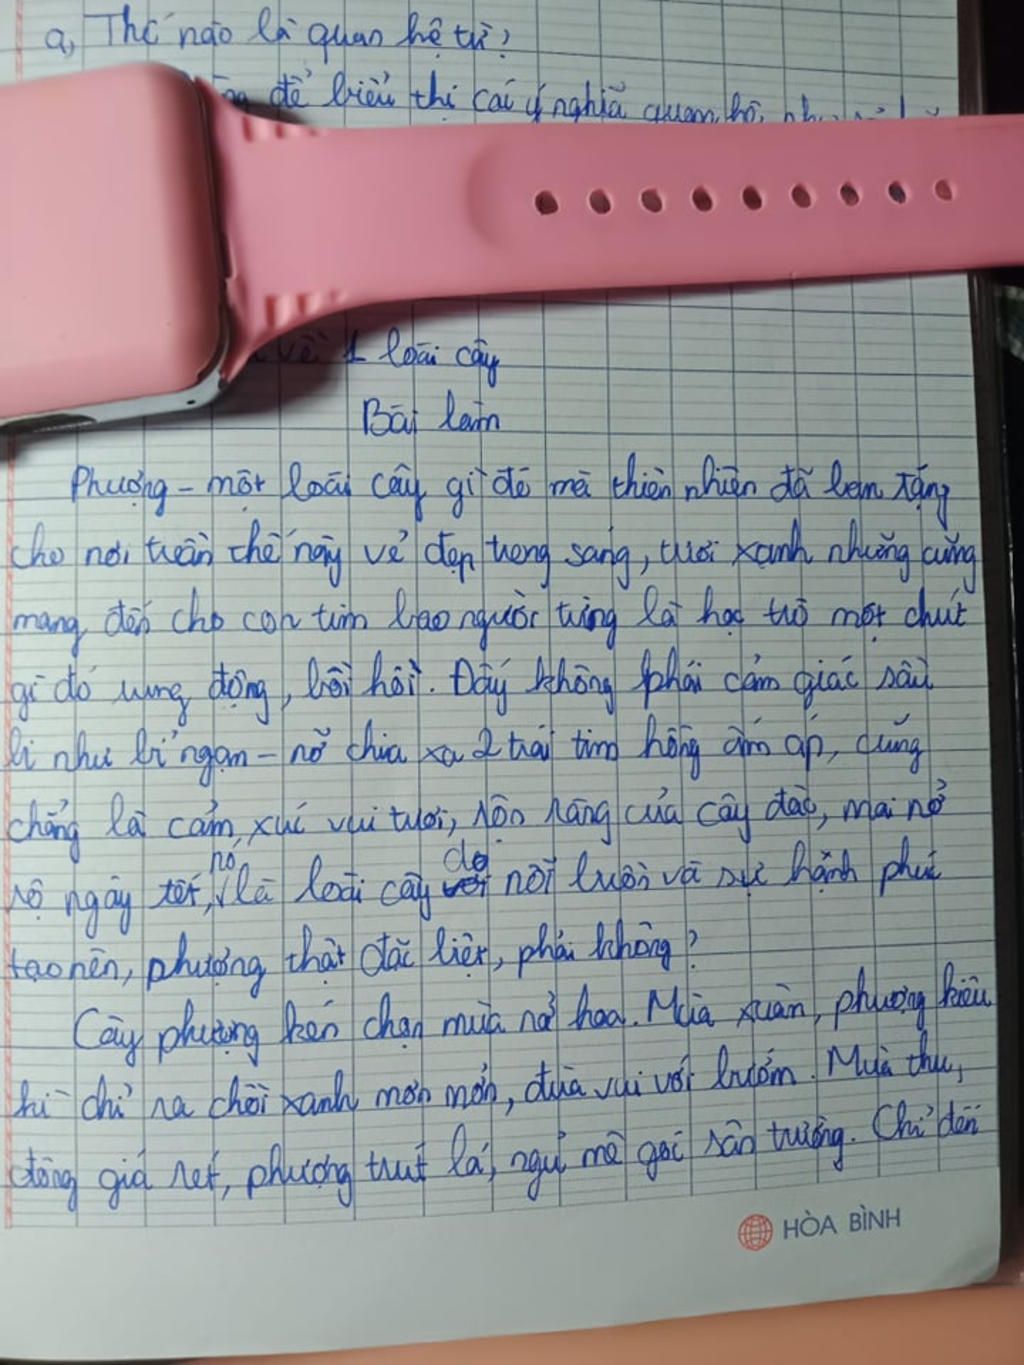 a, Thế nào là quan hệ từ?
để biểu thị các ý nghĩa quan hệ như
về 1 loài cây
Bài làm
Phượng – một loài cây gì đó mà thiên nhiên đã đem tặng
cho nơi trần thế này vẻ đẹp trong sáng, tươi xanh nhưng cũng
mang đến cho con tim bao người từng là học trò một chút
gì đó rung động, bồi hồi. Đấy không phải cảm giác sầu
bi như bỉ ngạn – nỡ chia xa 2 trái tim hồng ấm áp, cũng
chẳng là cảm xúc vui tươi, rộn ràng của cây đào, mai nở
rộ ngày tết, nó là loài cây do nỗi buồn và sự hạnh phúc
tạo nên, phượng thật đặc biệt, phải không?
Cây phượng kén chọn mùa nở hoa. Mùa xuân, phượng kiêu
kì chỉ ra chồi xanh mơn mởn, đùa vui với bướm. Mùa thu,
đông giá rét, phượng trút lá, ngủ mê góc sân trường. Chỉ đến
HÒA BÌNH